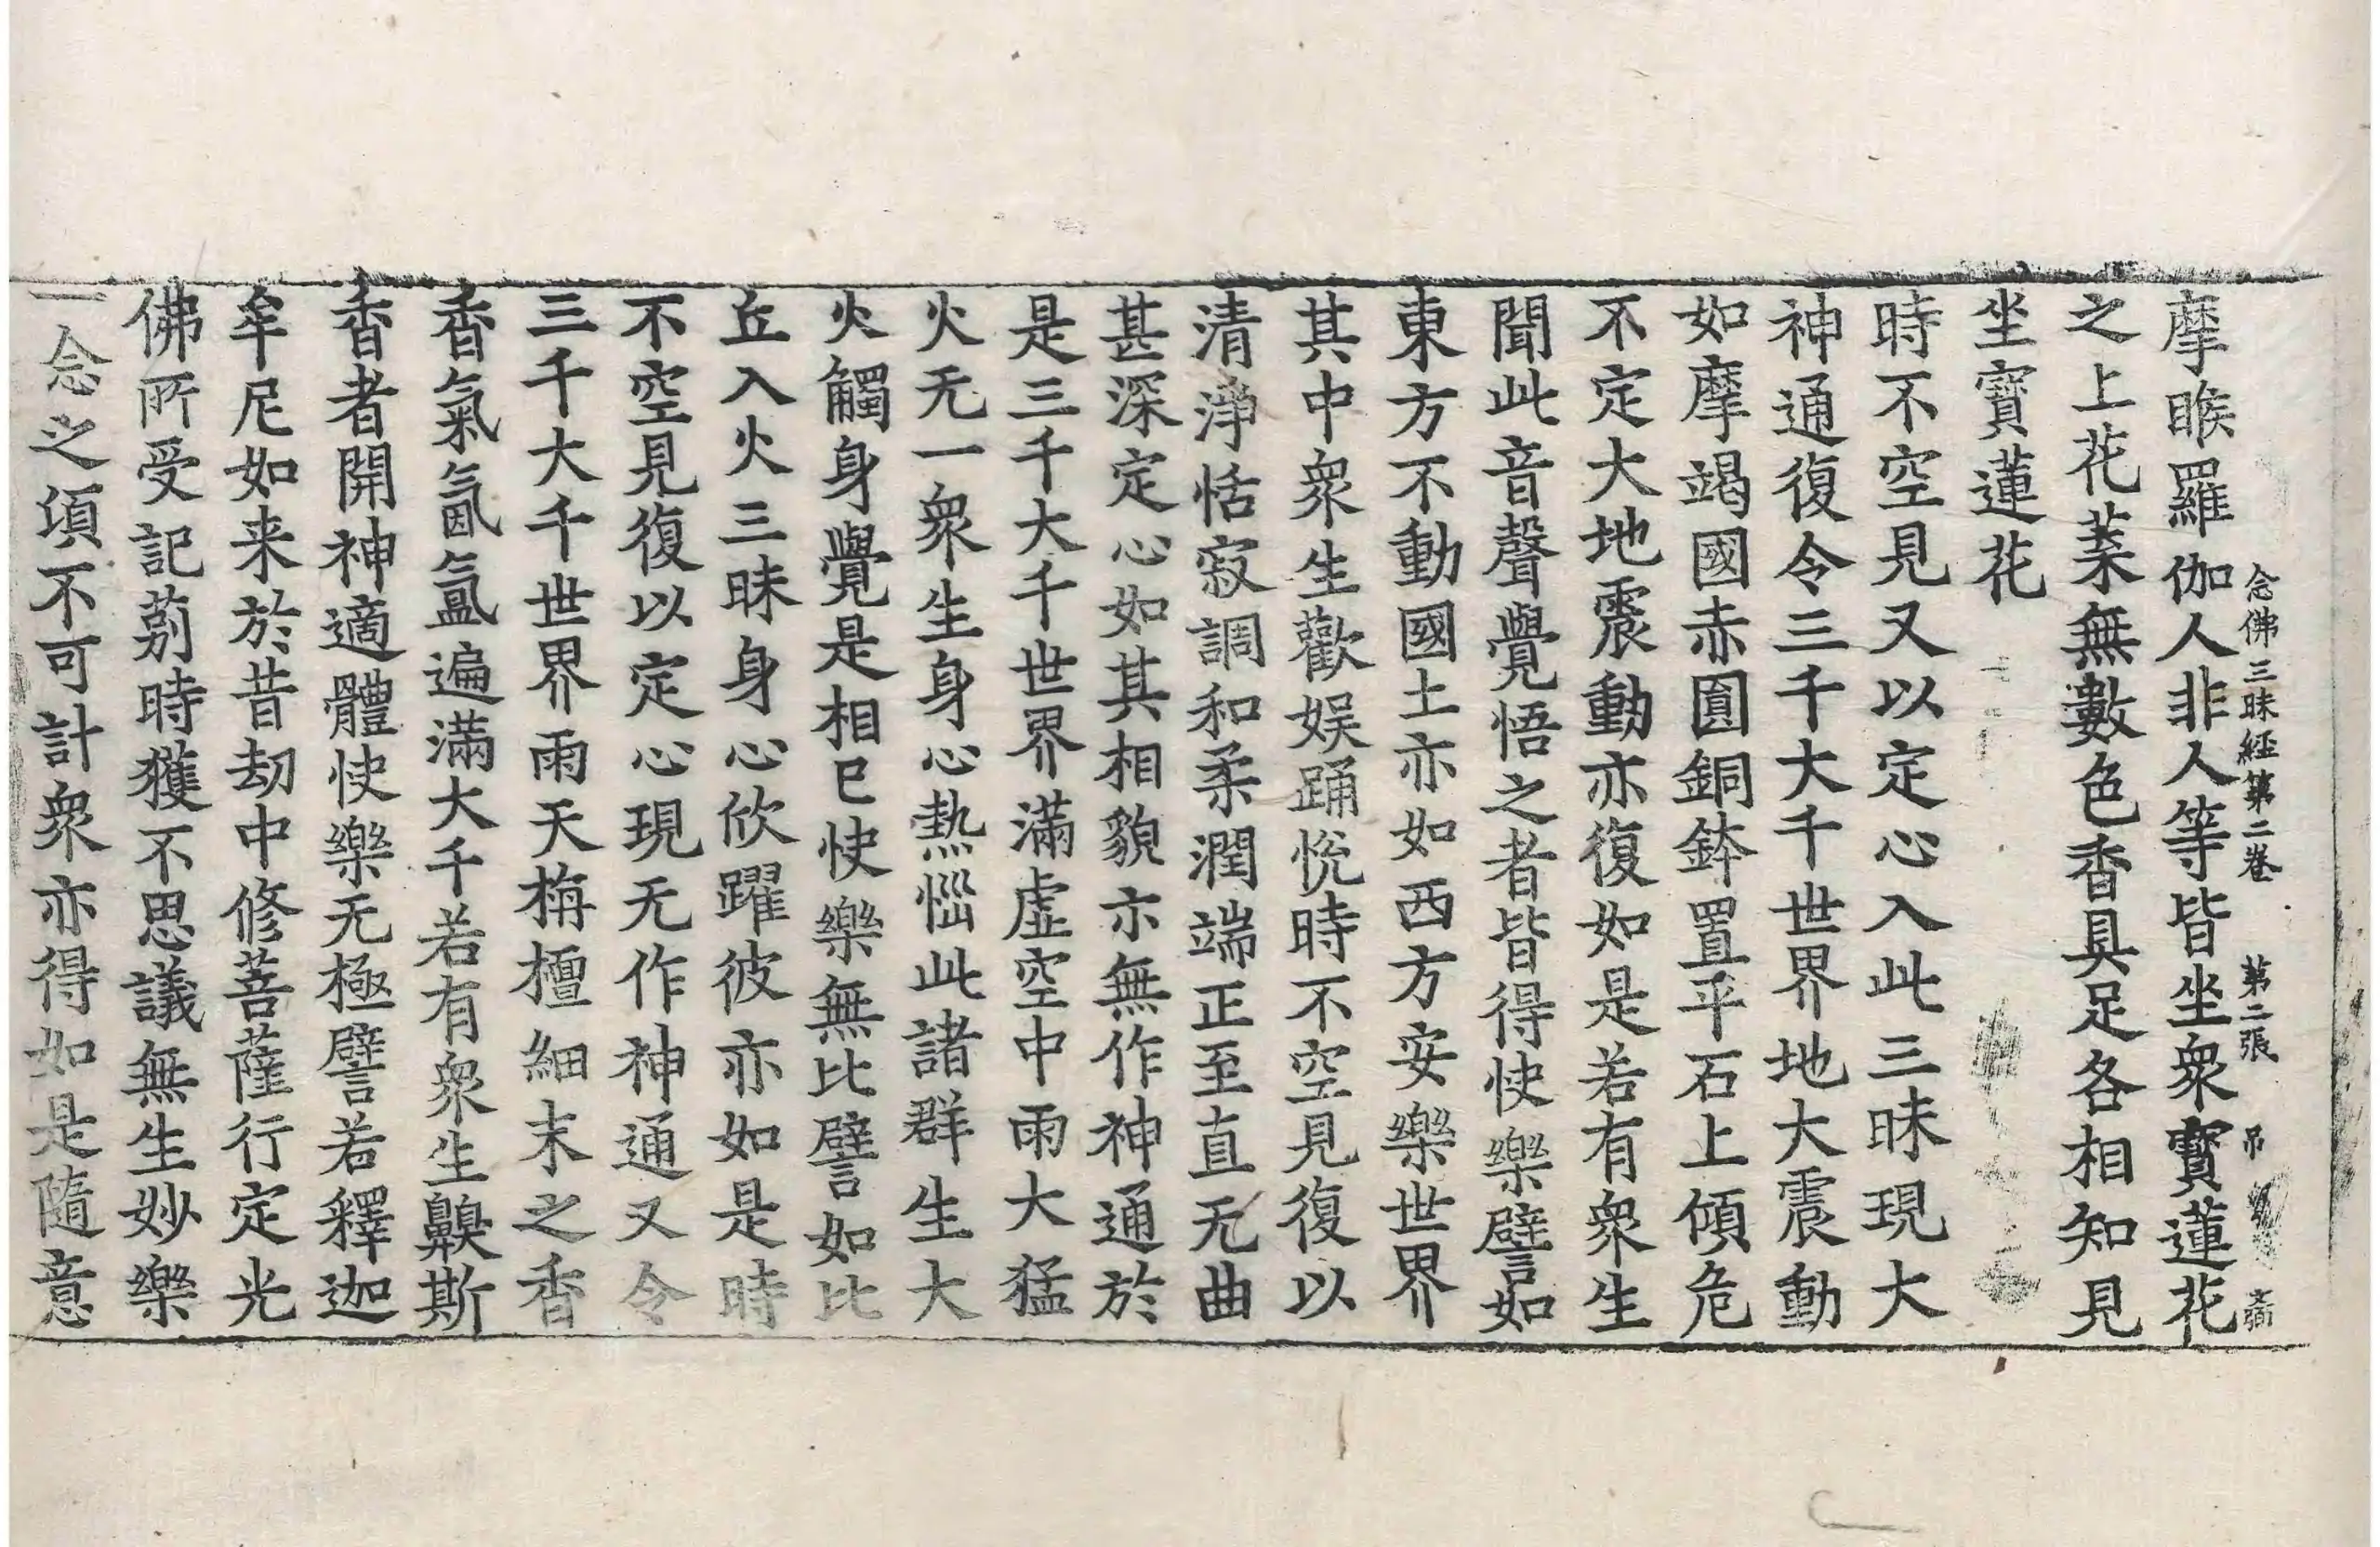 念佛三昧経第二卷 第二張 吊
摩睺羅伽人非人等皆坐衆寶蓮花
之上花葉無數色香具足各相知見
坐寶蓮花
時不空見又以定心入此三昧現大
神通復令三千大千世界地大震動
如摩竭國赤圓銅鉢置平石上傾危
不定大地震動亦復如是若有衆生
聞此音聲覺悟之者皆得快樂譬如
東方不動國土亦如西方安樂世界
其中衆生歡娱踊悅時不空見復以
清淨恬寂調和柔潤端正至直无曲
甚深定心如其相貌亦無作神通於
是三千大千世界滿虛空中雨大猛
火无一衆生身心熱惱此諸群生大
火觸身覺是相已快樂無比譬如比
丘入火三昧身心欣躍彼亦如是時
不空見復以定心現无作神通又令
三千大千世界雨天栴檀細末之香
香氣氤氳遍滿大千若有衆生齅斯
香者開神適體快樂无極譬若釋迦
牟尼如来於昔劫中修菩薩行定光
佛所受記莂時獲不思議無生妙樂
一念之須不可計衆亦得如是隨意